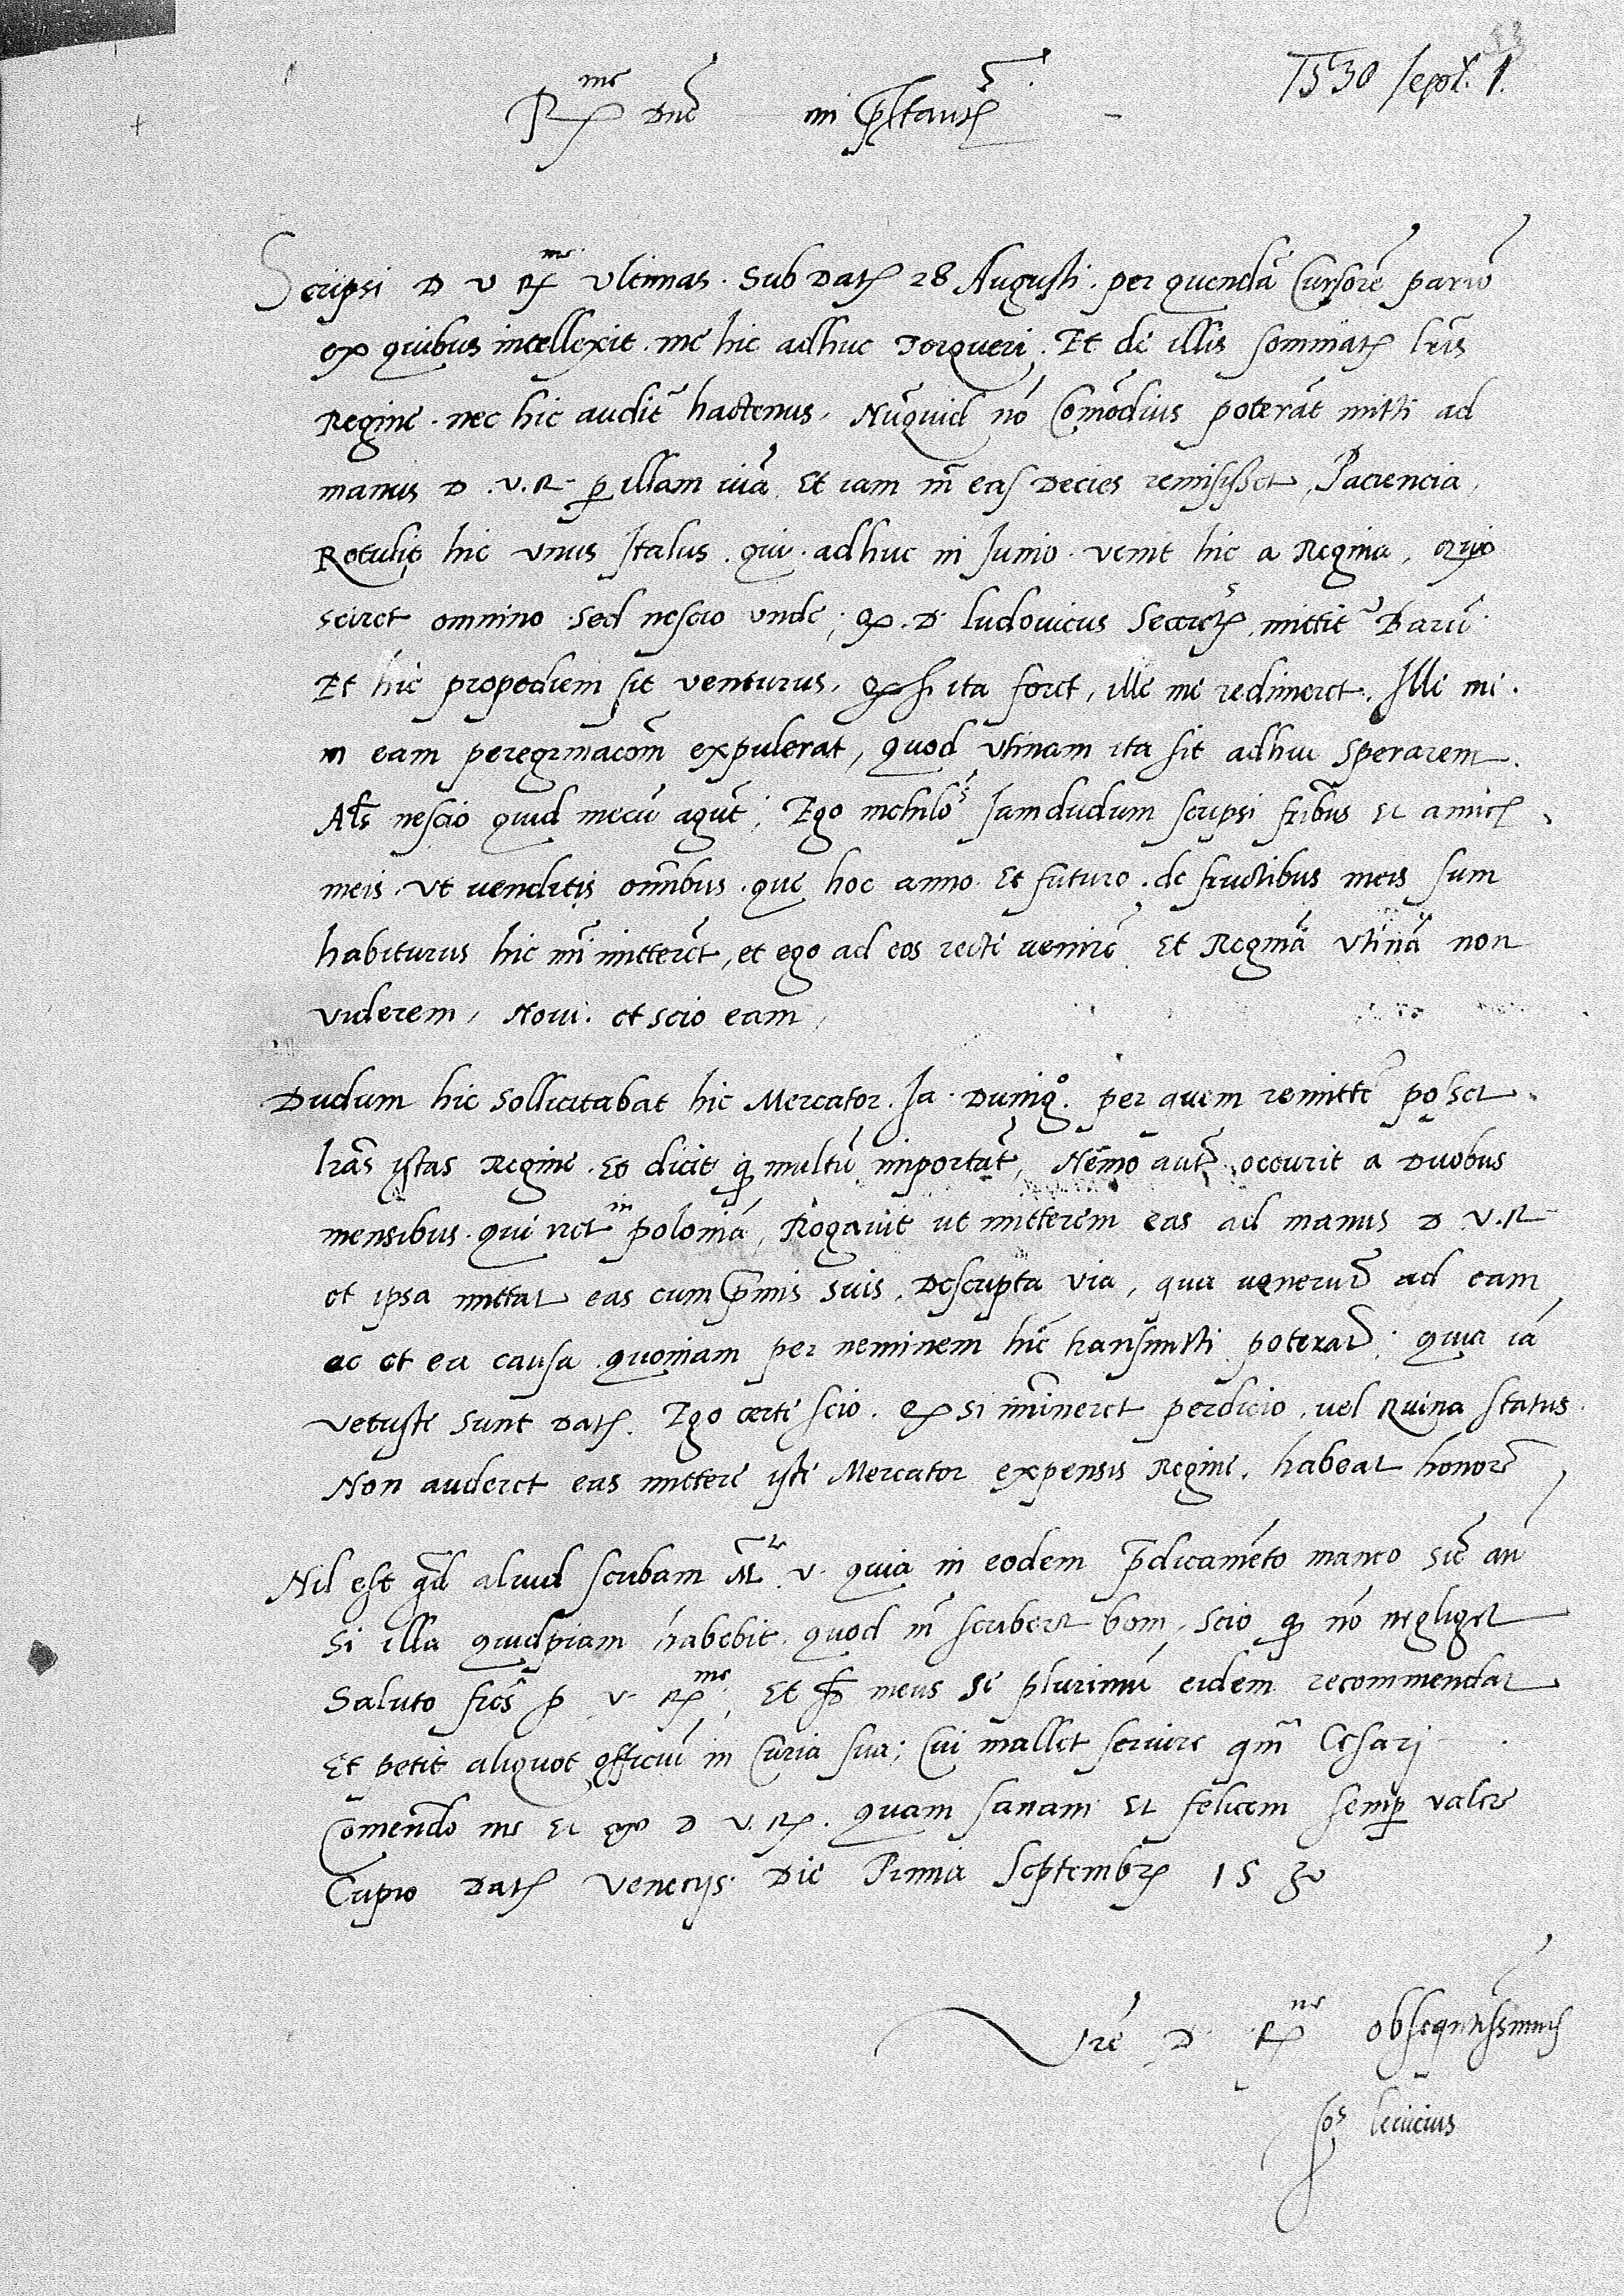 1530 Sept. 1.
R^me Dne mi p̃stantis^e
Scripsi D V R^me Ultimas. Sub Datis 28 Augusti. per quendã Cursorẽ parvũ
ex quibus intellexit. me hic adhuc Torqueri. Et de illis somniatis lrĩs
Regine. nec hic auditr̃ hactenus. Nũquid nõ Comodius poterãt mitti ad
manus D. V. R. p illam viã. Et iam mĩ eas Decies remisisset. Paciencia.
Retulit hic unus Italus. qui. adhuc in Junio. venit hic a Regina,
sciret omnino. sed nescio unde; D. Ludovicus Secretis. mittitr̃ Barũ.
Et hic propediem sit venturus. si ita foret, ille me redimeret. Ille me.
in eam peregrinacõm expulerat, quod utinam ita sit adhuc sperarem.
Als nescio quid mecũ agũt; Ego nichilo^s Jamdudum scripsi fribus et amicis
meis. ut venditis omnibus. que hoc anno et futuro. de fructibus meis sum
habiturus hic mĩ mitterẽt, et ego ad eos recte venirẽ. Et Reginã utinã non
viderem, Novi. et scio eam,
Dudum hic sollicitabat hic Mercator. Ja. Dunig^o. per quem remitte posset.
lrãs istas Regine. Eo dicit q multũ importãt, Nemo autẽ occurit a Duobus
mensibus. qui iret in polonia, Rogavit ut mitterem eas ad manus D V. R
et ipsa mittat eas cum p̃mis suis. Descripta via, qua venerũt ad eam
ac et ea causa. quoniam per neminem hĩc transmitti poterãt. quia iã
vetuste sunt Datis. Ego certe scio. si immineret perdicio, vel Ruina status.
Non auderet eas mittere iste Mercator expensis Regine. habeat honorẽ
Nil est qd aliud scribam V. quia in eodem p̃dicamẽto maneo sicũ an
Si illa quidpiam habebit. quod mĩ scriberet boni. scio q nõ negliget
Saluto frẽs V. R^me. Et meus se plurimũ eidem recommendat
Et petit aliquot officiũ in Curia sua; Cui mallet servire qm̃ Cesarj
Comendo me Et D V. R. Quam sanam Et felicem semp valere
Cupio Datis Venecijs. Die Prima Septembris 1530
Vrẽ D. R^me obsequẽtissimus
Jo^s lecucius